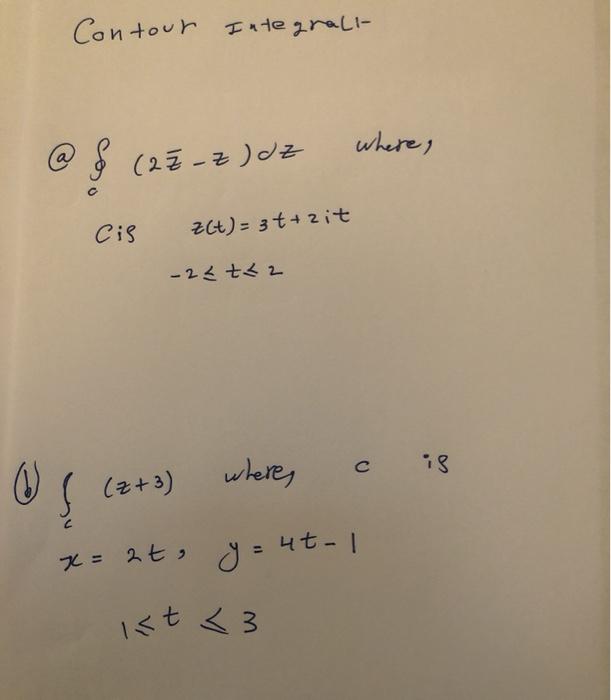 Contour Integral:-
ⓐ ∮_C (2z̄ - z) dz where,
C is z(t) = 3t + 2it
-2 ≤ t ≤ 2
ⓑ ∫_C (z+3) where, c is
x = 2t, y = 4t - 1
1 ≤ t ≤ 3